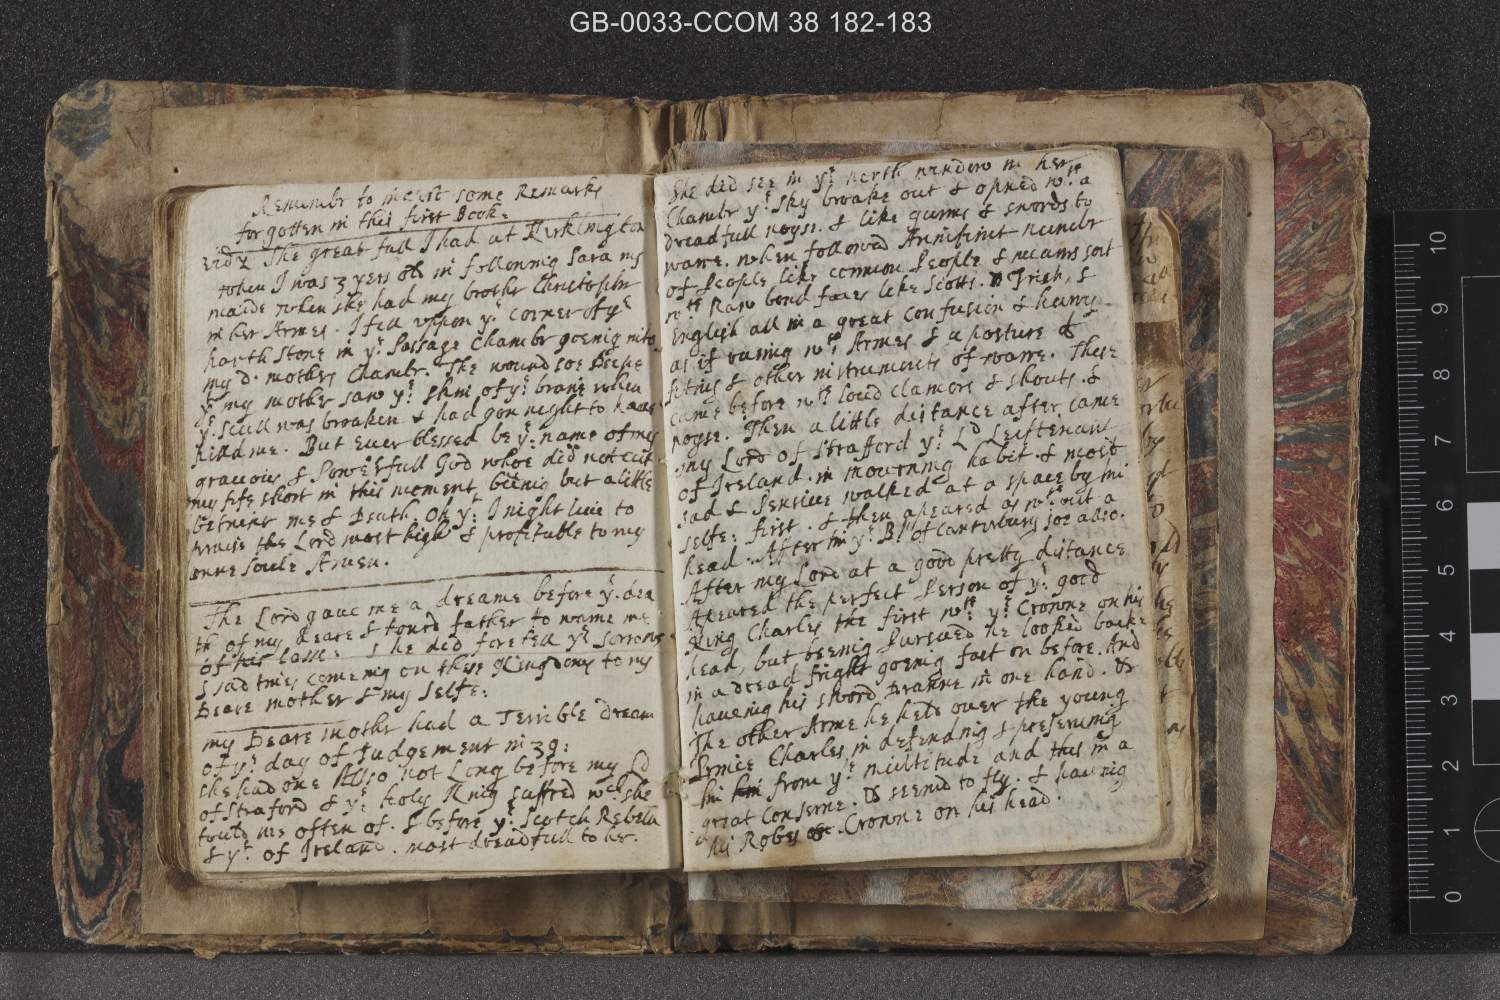 GB-0033-CCOM 38 182-183
Remembr to insert some Remarks
forgotten in this first Book:
vidz The great fall I had at Kirklington
when I was 3 yers old in following Sara my
maide when she had my brother Christopher
in her Armes. I fell uppon ye corner of ye
harth stone in ye Passage Chambr goeing into
my d. mothers Chambr. The wound soe Deepe
yt my mother saw ye skin of ye braine when
ye scull was broaken & had gon neight to haue
killd me. But euer blessed be ye name of my
gracious & Powerfull God whoe did not cut
my life short in this moment beeing but a little
betwixt me & Death. Oh yt I might liue to
praise the Lord most high & profitable to my
owne soule Amen.
The Lord gaue me a dreame before ye dea
th of my deare & loued father to warne me
of his losse: & he did foretell ye sorrows
& sad times comeing on these Kingdoms to my
Deare mother & my selfe:
my Deare mother had a Terrible dream
of ye day of Judgement in 39:
she had one Allso not Long before my Ld
of Straford & ye holy King suffred wch she
tould me often of. & before ye Scotch Rebelln
& yt of Ireland. most dreadfull to her.
She did see in ye north window in her
Chambr ye sky broake out & opned wth a
dreadfull noyse. & like gunns & swords to
warre. when followed An infinit numbr
of People like common People & meane sort
wth Raw bond faces like Scotts. & Irish, &
English all in a great confusion & hurry
as if runing wth Armes & a posture of
fiting & other instruments of warre. These
came before wth loud clamors & shouts. &
noyse. Then a little distance after came
my Lord of Strafford ye Ld Leiftenant
of Ireland. in mourning habit. & most
sad & Pensiue walked at a space by him
selfe: first. & then apeared as wth out a
head. After him ye Bp of Canterbury soe allso.
After my Lord at a good pretty distance
Apeared the perfect Person of ye good
King Charles the first wth ye Crowne on his
head, but beeing Pursued he looked backe
in a dread fright goeing fast on before. And
haueing his sword Drawne in one hand. &
The other Arme he held over the young
Prince Charles in defending & preserving
him from ye multitude and this in a
great conserne. & seemd to fly. & haueing
his Robes & Crowne on his head.
10
9
8
7
6
5
4
3
2
1
0